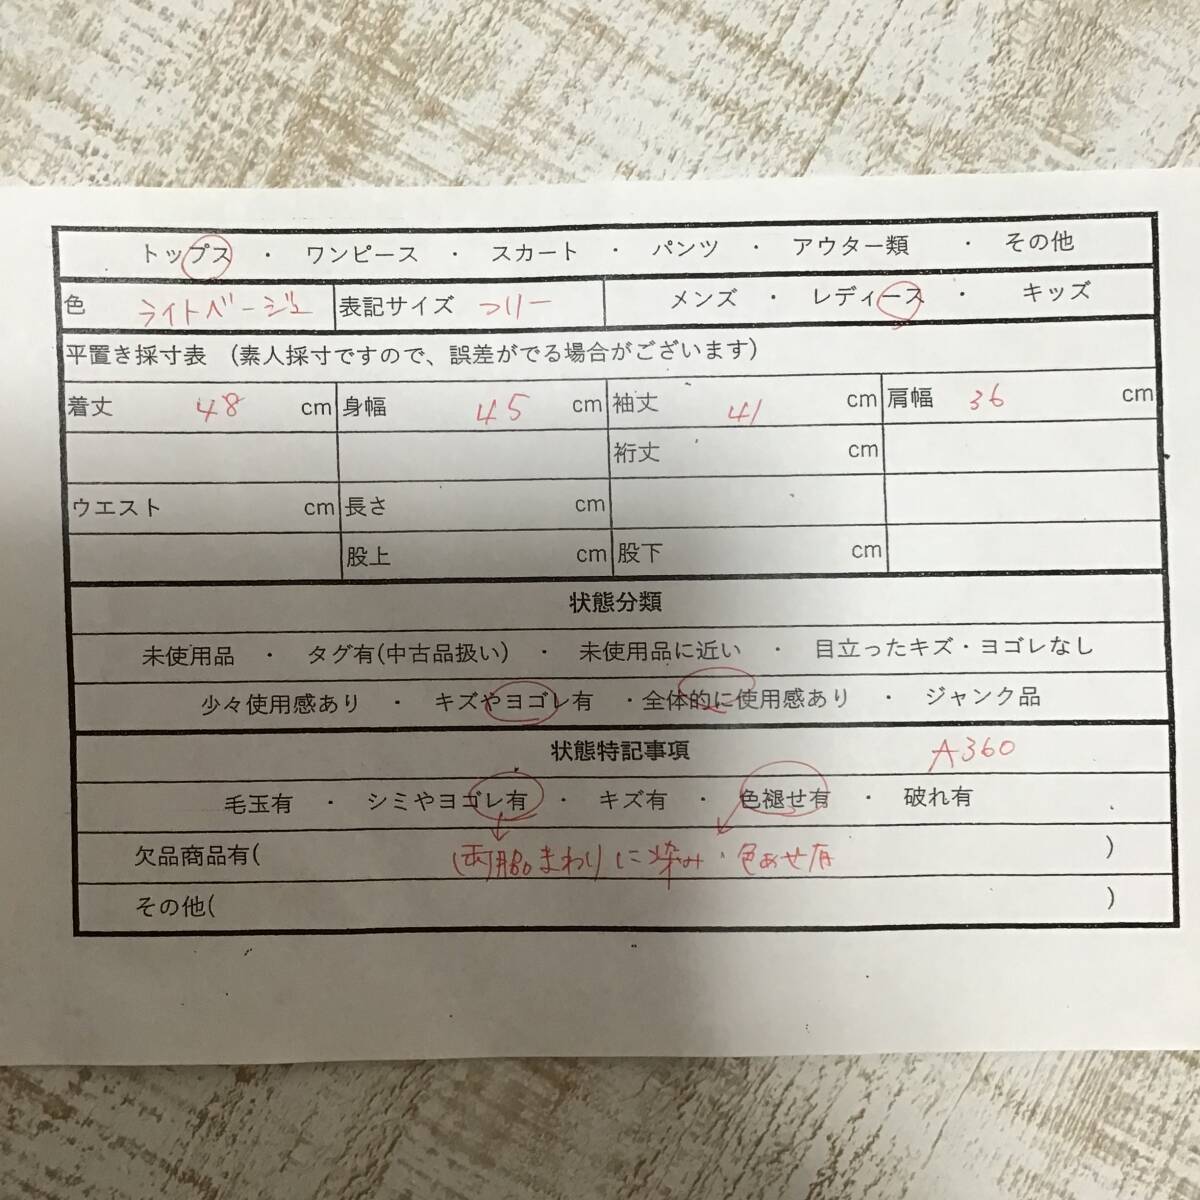 トップス ・ ワンピース ・ スカート ・ パンツ ・ アウター類 ・ その他
色 ライトベージュ 表記サイズ フリー メンズ ・ レディース ・ キッズ
平置き採寸表 (素人採寸ですので、誤差がでる場合がございます)
着丈 48 cm 身幅 45 cm 袖丈 41 cm 肩幅 36 cm
裄丈 cm
ウエスト cm 長さ cm
股上 cm 股下 cm
状態分類
未使用品 ・ タグ有(中古品扱い) ・ 未使用品に近い ・ 目立ったキズ・ヨゴレなし
少々使用感あり ・ キズやヨゴレ有 ・全体的に使用感あり ・ ジャンク品
状態特記事項 A360
毛玉有 ・ シミやヨゴレ有 ・ キズ有 ・ 色褪せ有 ・ 破れ有
欠品商品有( )
(両脇まわりに染み・色あせ有
その他( )